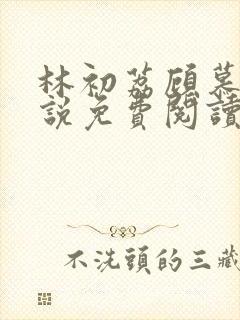 林初荔顾慕
說免費閱讀
不洗頭的三藏